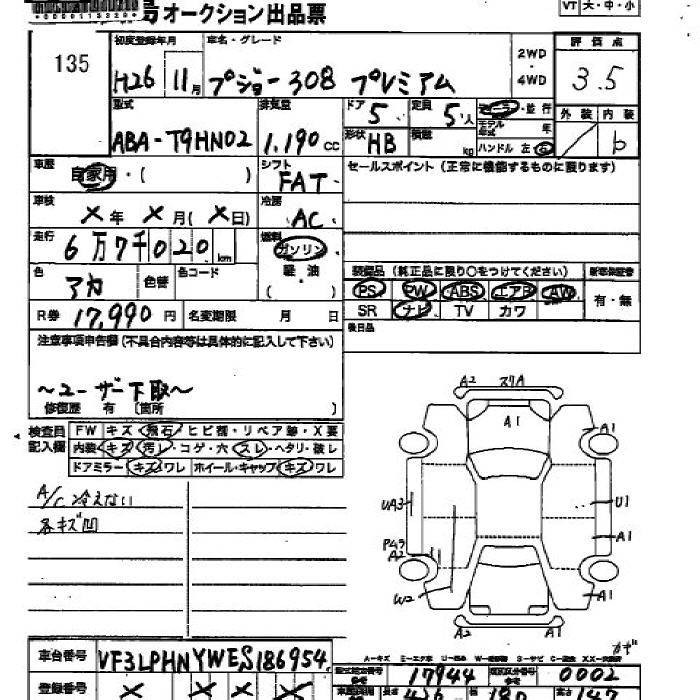 オークション出品票
VT 大・中・小
135
初度登録年月 車名・グレード
H26 11月 プジョー308 プレミアム
2WD・4WD
評価点
3.5
型式 排気量 ドア 定員
ABA-T9HN02 1.190cc 5 5人
形状 HB 積載 kg
ディーラー・並行
モデル年式 年
ハンドル 左 右
外装 内装
b
車歴 シフト
自家用・( ) FAT
セールスポイント (正常に機能するものに限ります)
車検 冷房
×年 ×月(×日) AC
走行 燃料
6万7千020km ガソリン・軽油
( )
色 色替 色コード
アカ
装備品 (純正品に限り○をつけてください) 新車保証書
PS PW ABS エアB AW 有・無
SR ナビ TV カワ
R券 17,990円 名変期限 月 日
後日品
注意事項申告欄 (不具合内容等は具体的に記入して下さい)
~ユーザー下取~
修復歴 有 〔箇所 〕
検査員記入欄
FW キズ・飛石・ヒビ割・リペア跡・X要
内装 キズ・汚レ・コゲ・穴・スレ・ヘタリ・破レ
ドアミラー キズ・ワレ ホイール・キャップ キズ・ワレ
A/C 冷えない
各キズ凹
A2 スリA
A1
A1
UA3
U1
A1
A2
W2
A1
A2 A1
車台番号 VF3LPHNYWES186954
登録番号 × × ×
17944 0002